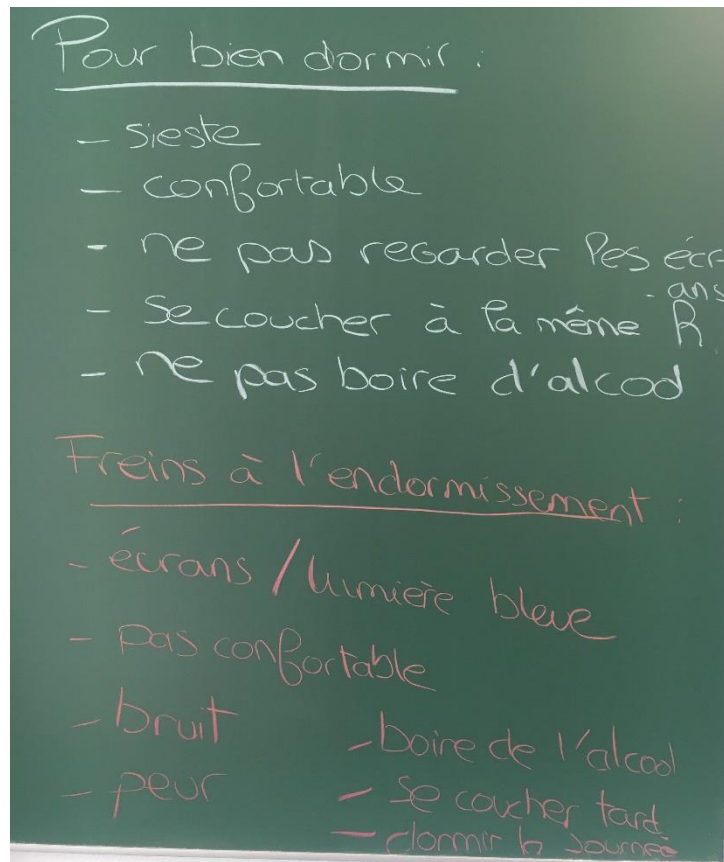 Pour bien dormir :
- sieste
- confortable
- ne pas regarder les écr-
ans
- se coucher à la même h
- ne pas boire d'alcool
Freins à l'endormissement :
- écrans / lumière bleue
- pas confortable
- bruit
- peur
- boire de l'alcool
- se coucher tard
- dormir la journée